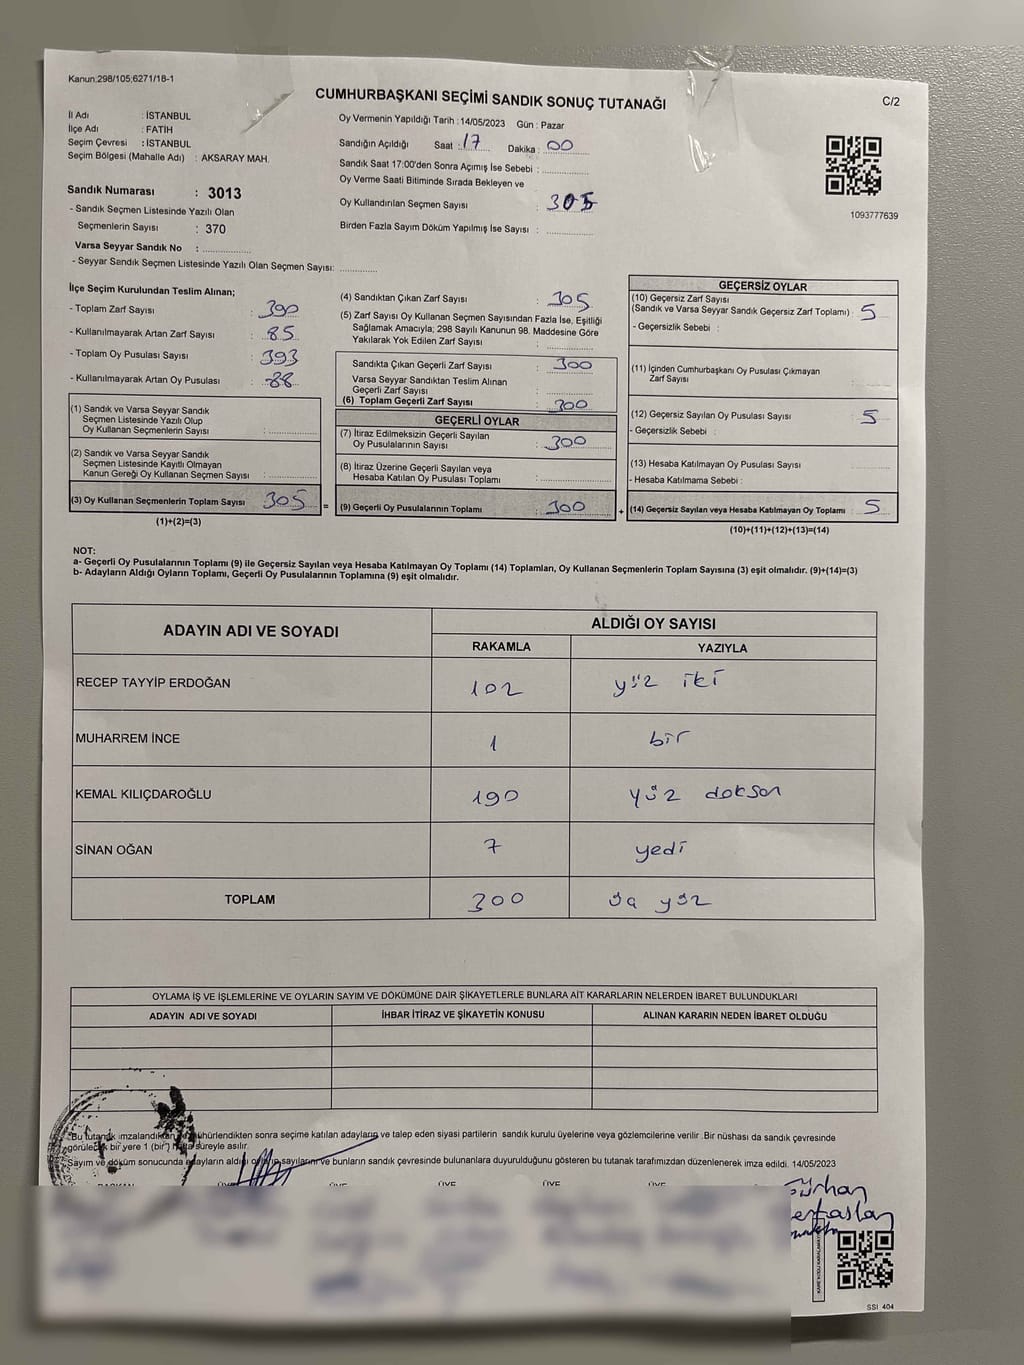 Kanun:298/105;6271/18-1
CUMHURBAŞKANI SEÇİMİ SANDIK SONUÇ TUTANAĞI
C/2
İl Adı : İSTANBUL
İlçe Adı : FATİH
Seçim Çevresi : İSTANBUL
Seçim Bölgesi (Mahalle Adı) : AKSARAY MAH.
Sandık Numarası : 3013
- Sandık Seçmen Listesinde Yazılı Olan
Seçmenlerin Sayısı : 370
Varsa Seyyar Sandık No :
- Seyyar Sandık Seçmen Listesinde Yazılı Olan Seçmen Sayısı:
Oy Vermenin Yapıldığı Tarih : 14/05/2023 Gün : Pazar
Sandığın Açıldığı Saat : 17 Dakika : 00
Sandık Saat 17:00'den Sonra Açımış İse Sebebi :
Oy Verme Saati Bitiminde Sırada Bekleyen ve
Oy Kullandırılan Seçmen Sayısı : 305
Birden Fazla Sayım Döküm Yapılmış İse Sayısı :
1093777639
İlçe Seçim Kurulundan Teslim Alınan;
- Toplam Zarf Sayısı : 390
- Kullanılmayarak Artan Zarf Sayısı : 85
- Toplam Oy Pusulası Sayısı : 393
- Kullanılmayarak Artan Oy Pusulası : 88
(1) Sandık ve Varsa Seyyar Sandık
Seçmen Listesinde Yazılı Olup
Oy Kullanan Seçmenlerin Sayısı :
(2) Sandık ve Varsa Seyyar Sandık
Seçmen Listesinde Kayıtlı Olmayan
Kanun Gereği Oy Kullanan Seçmen Sayısı :
(3) Oy Kullanan Seçmenlerin Toplam Sayısı 305 =
(1)+(2)=(3)
(4) Sandıktan Çıkan Zarf Sayısı : 305
(5) Zarf Sayısı Oy Kullanan Seçmen Sayısından Fazla İse, Eşitliği
Sağlamak Amacıyla; 298 Sayılı Kanunun 98. Maddesine Göre
Yakılarak Yok Edilen Zarf Sayısı :
Sandıkta Çıkan Geçerli Zarf Sayısı : 300
Varsa Seyyar Sandıktan Teslim Alınan
Geçerli Zarf Sayısı :
(6) Toplam Geçerli Zarf Sayısı : 300
GEÇERLİ OYLAR
(7) İtiraz Edilmeksizin Geçerli Sayılan
Oy Pusulalarının Sayısı : 300
(8) İtiraz Üzerine Geçerli Sayılan veya
Hesaba Katılan Oy Pusulası Toplamı :
(9) Geçerli Oy Pusulalarının Toplamı : 300 +
GEÇERSİZ OYLAR
(10) Geçersiz Zarf Sayısı
(Sandık ve Varsa Seyyar Sandık Geçersiz Zarf Toplamı) : 5
- Geçersizlik Sebebi :
(11) İçinden Cumhurbaşkanı Oy Pusulası Çıkmayan
Zarf Sayısı
(12) Geçersiz Sayılan Oy Pusulası Sayısı : 5
- Geçersizlik Sebebi :
(13) Hesaba Katılmayan Oy Pusulası Sayısı
- Hesaba Katılmama Sebebi :
(14) Geçersiz Sayılan veya Hesaba Katılmayan Oy Toplamı : 5
(10)+(11)+(12)+(13)=(14)
NOT:
a- Geçerli Oy Pusulalarının Toplamı (9) ile Geçersiz Sayılan veya Hesaba Katılmayan Oy Toplamı (14) Toplamları, Oy Kullanan Seçmenlerin Toplam Sayısına (3) eşit olmalıdır. (9)+(14)=(3)
b- Adayların Aldığı Oyların Toplamı, Geçerli Oy Pusulalarının Toplamına (9) eşit olmalıdır.
ADAYIN ADI VE SOYADI
ALDIĞI OY SAYISI
RAKAMLA YAZIYLA
RECEP TAYYİP ERDOĞAN 102 yüz iki
MUHARREM İNCE 1 bir
KEMAL KILIÇDAROĞLU 190 yüz doksan
SİNAN OĞAN 7 yedi
TOPLAM 300 üç yüz
OYLAMA İŞ VE İŞLEMLERİNE VE OYLARIN SAYIM VE DÖKÜMÜNE DAİR ŞİKAYETLERLE BUNLARA AİT KARARLARIN NELERDEN İBARET BULUNDUKLARI
ADAYIN ADI VE SOYADI İHBAR İTİRAZ VE ŞİKAYETİN KONUSU ALINAN KARARIN NEDEN İBARET OLDUĞU
Bu tutanak imzalandıktan ve mühürlendikten sonra seçime katılan adayların ve talep eden siyasi partilerin sandık kurulu üyelerine veya gözlemcilerine verilir. Bir nüshası da sandık çevresinde
görülecek bir yere 1 (bir) hafta süreyle asılır.
Sayım ve döküm sonucunda adayların aldığı oyların sayılarını ve bunların sandık çevresinde bulunanlara duyurulduğunu gösteren bu tutanak tarafımızdan düzenlenerek imza edildi. 14/05/2023
BAŞKAN ÜYE ÜYE ÜYE ÜYE
SSI 404